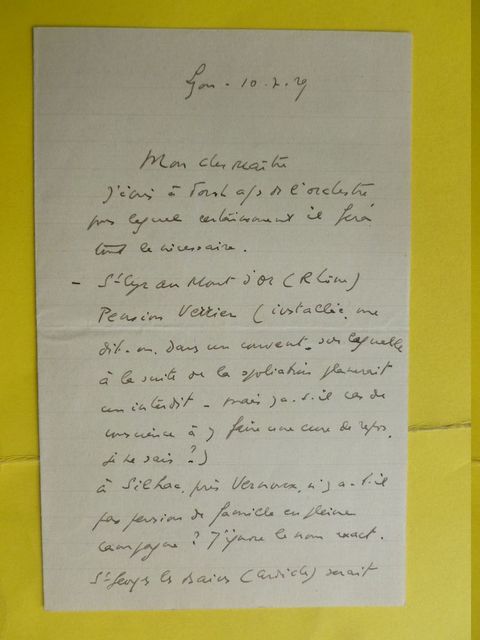 Lyon - 10.7.29
Mon cher maître
J'écris à a/s de l'orchestre
pour lequel certainement il fera
tout le nécessaire.
- St Cyr au Mont d'Or (Rhône)
Pension Verrier (installée, me
dit-on, dans un couvent sur laquelle
à la suite de la spoliation planerait
un interdit - mais y a-t-il cas de
conscience à y faire une cure de repos,
je ne sais ?)
à Silhac, près Vernoux, n'y a-t-il
pas pension de famille en pleine
campagne ? J'ignore le nom exact.
St Georges les Bains (Ardèche) serait